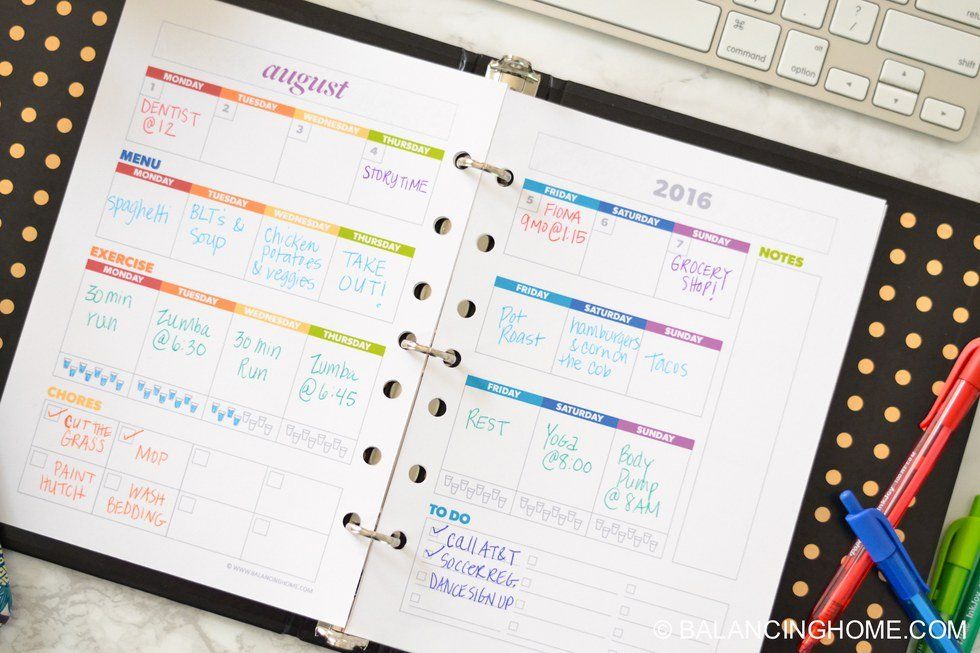 august
MONDAY TUESDAY WEDNESDAY THURSDAY
1 2 3 4
DENTIST
@12
STORYTIME
MENU
MONDAY TUESDAY WEDNESDAY THURSDAY
spaghetti
BLT's &
Soup
Chicken
potatoes
& veggies
TAKE
OUT!
EXERCISE
MONDAY TUESDAY WEDNESDAY THURSDAY
30 min
run
Zumba
@ 6:30
30 min
Run
Zumba
@ 6:45
CHORES
CUT THE
GRASS
MOP
PAINT
HUTCH
WASH
BEDDING
© WWW.BALANCINGHOME.COM
2016
FRIDAY SATURDAY SUNDAY
5 6 7
FIONA
9MO@1:15
GROCERY
SHOP!
NOTES
FRIDAY SATURDAY SUNDAY
Pot
Roast
hamburgers
& corn on
the cob
Tacos
FRIDAY SATURDAY SUNDAY
REST
Yoga
@8:00
Body
Pump
@ 8AM
TO DO
CALL AT&T
SOCCER REG.
DANCE SIGN UP
command
option
shift
? /
© BALANCINGHOME.COM